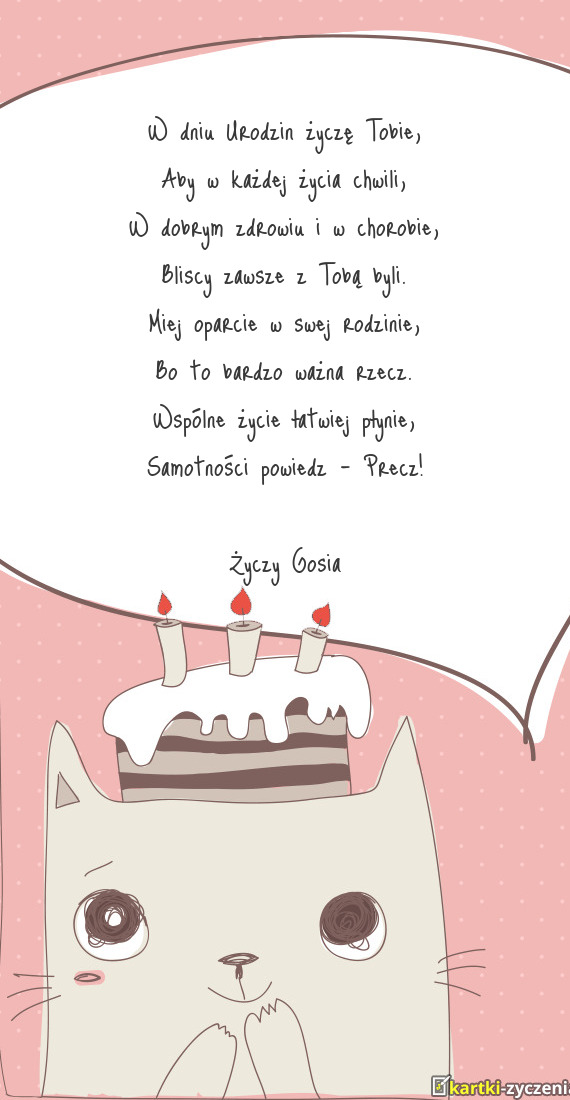 W dniu Urodzin życzę Tobie,
Aby w każdej życia chwili,
W dobrym zdrowiu i w chorobie,
Bliscy zawsze z Tobą byli.
Miej oparcie w swej rodzinie,
Bo to bardzo ważna rzecz.
Wspólne życie łatwiej płynie,
Samotności powiedz - Precz!
Życzy Gosia
kartki-zyczenia